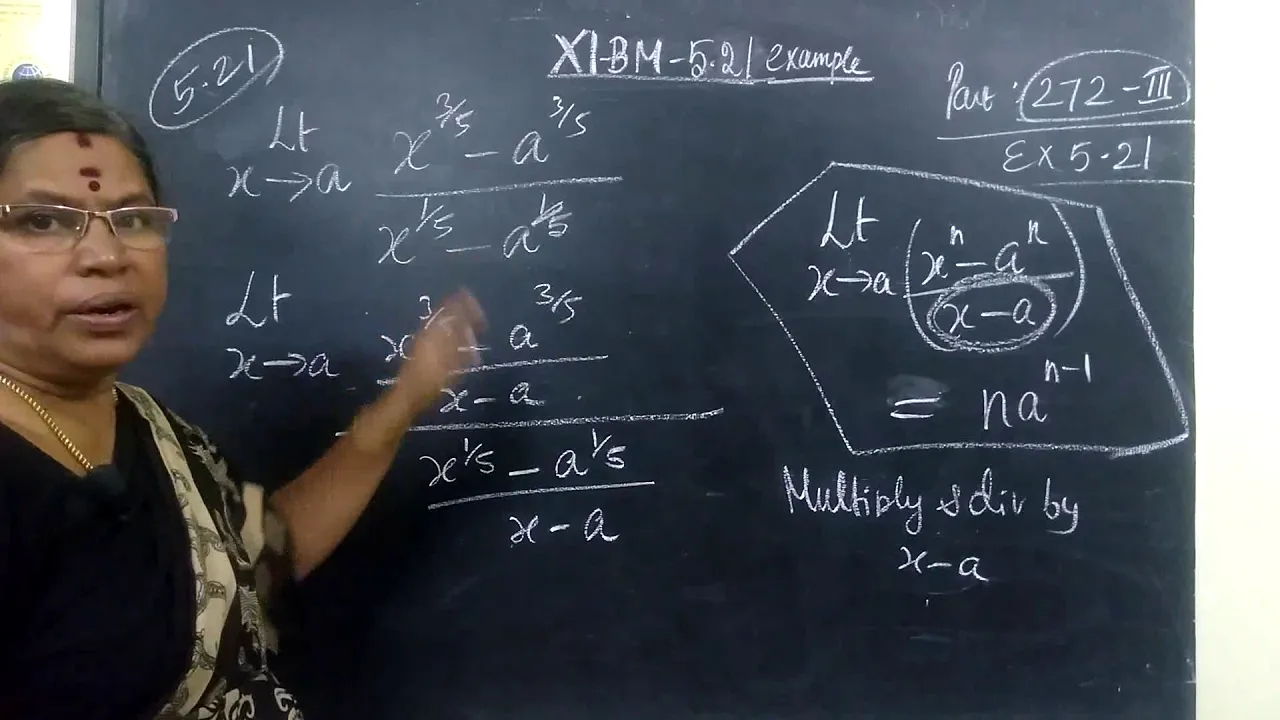 XI-BM-5.21 example
5.21
Part: 272-III
Ex 5.21
Lt x→a (x^{3/5} - a^{3/5}) / (x^{1/5} - a^{1/5})
Lt x→a ((x^{3/5} - a^{3/5}) / (x - a)) / ((x^{1/5} - a^{1/5}) / (x - a))
Lt x→a ((x^n - a^n) / (x - a))
= na^{n-1}
Multiply & div by
x - a